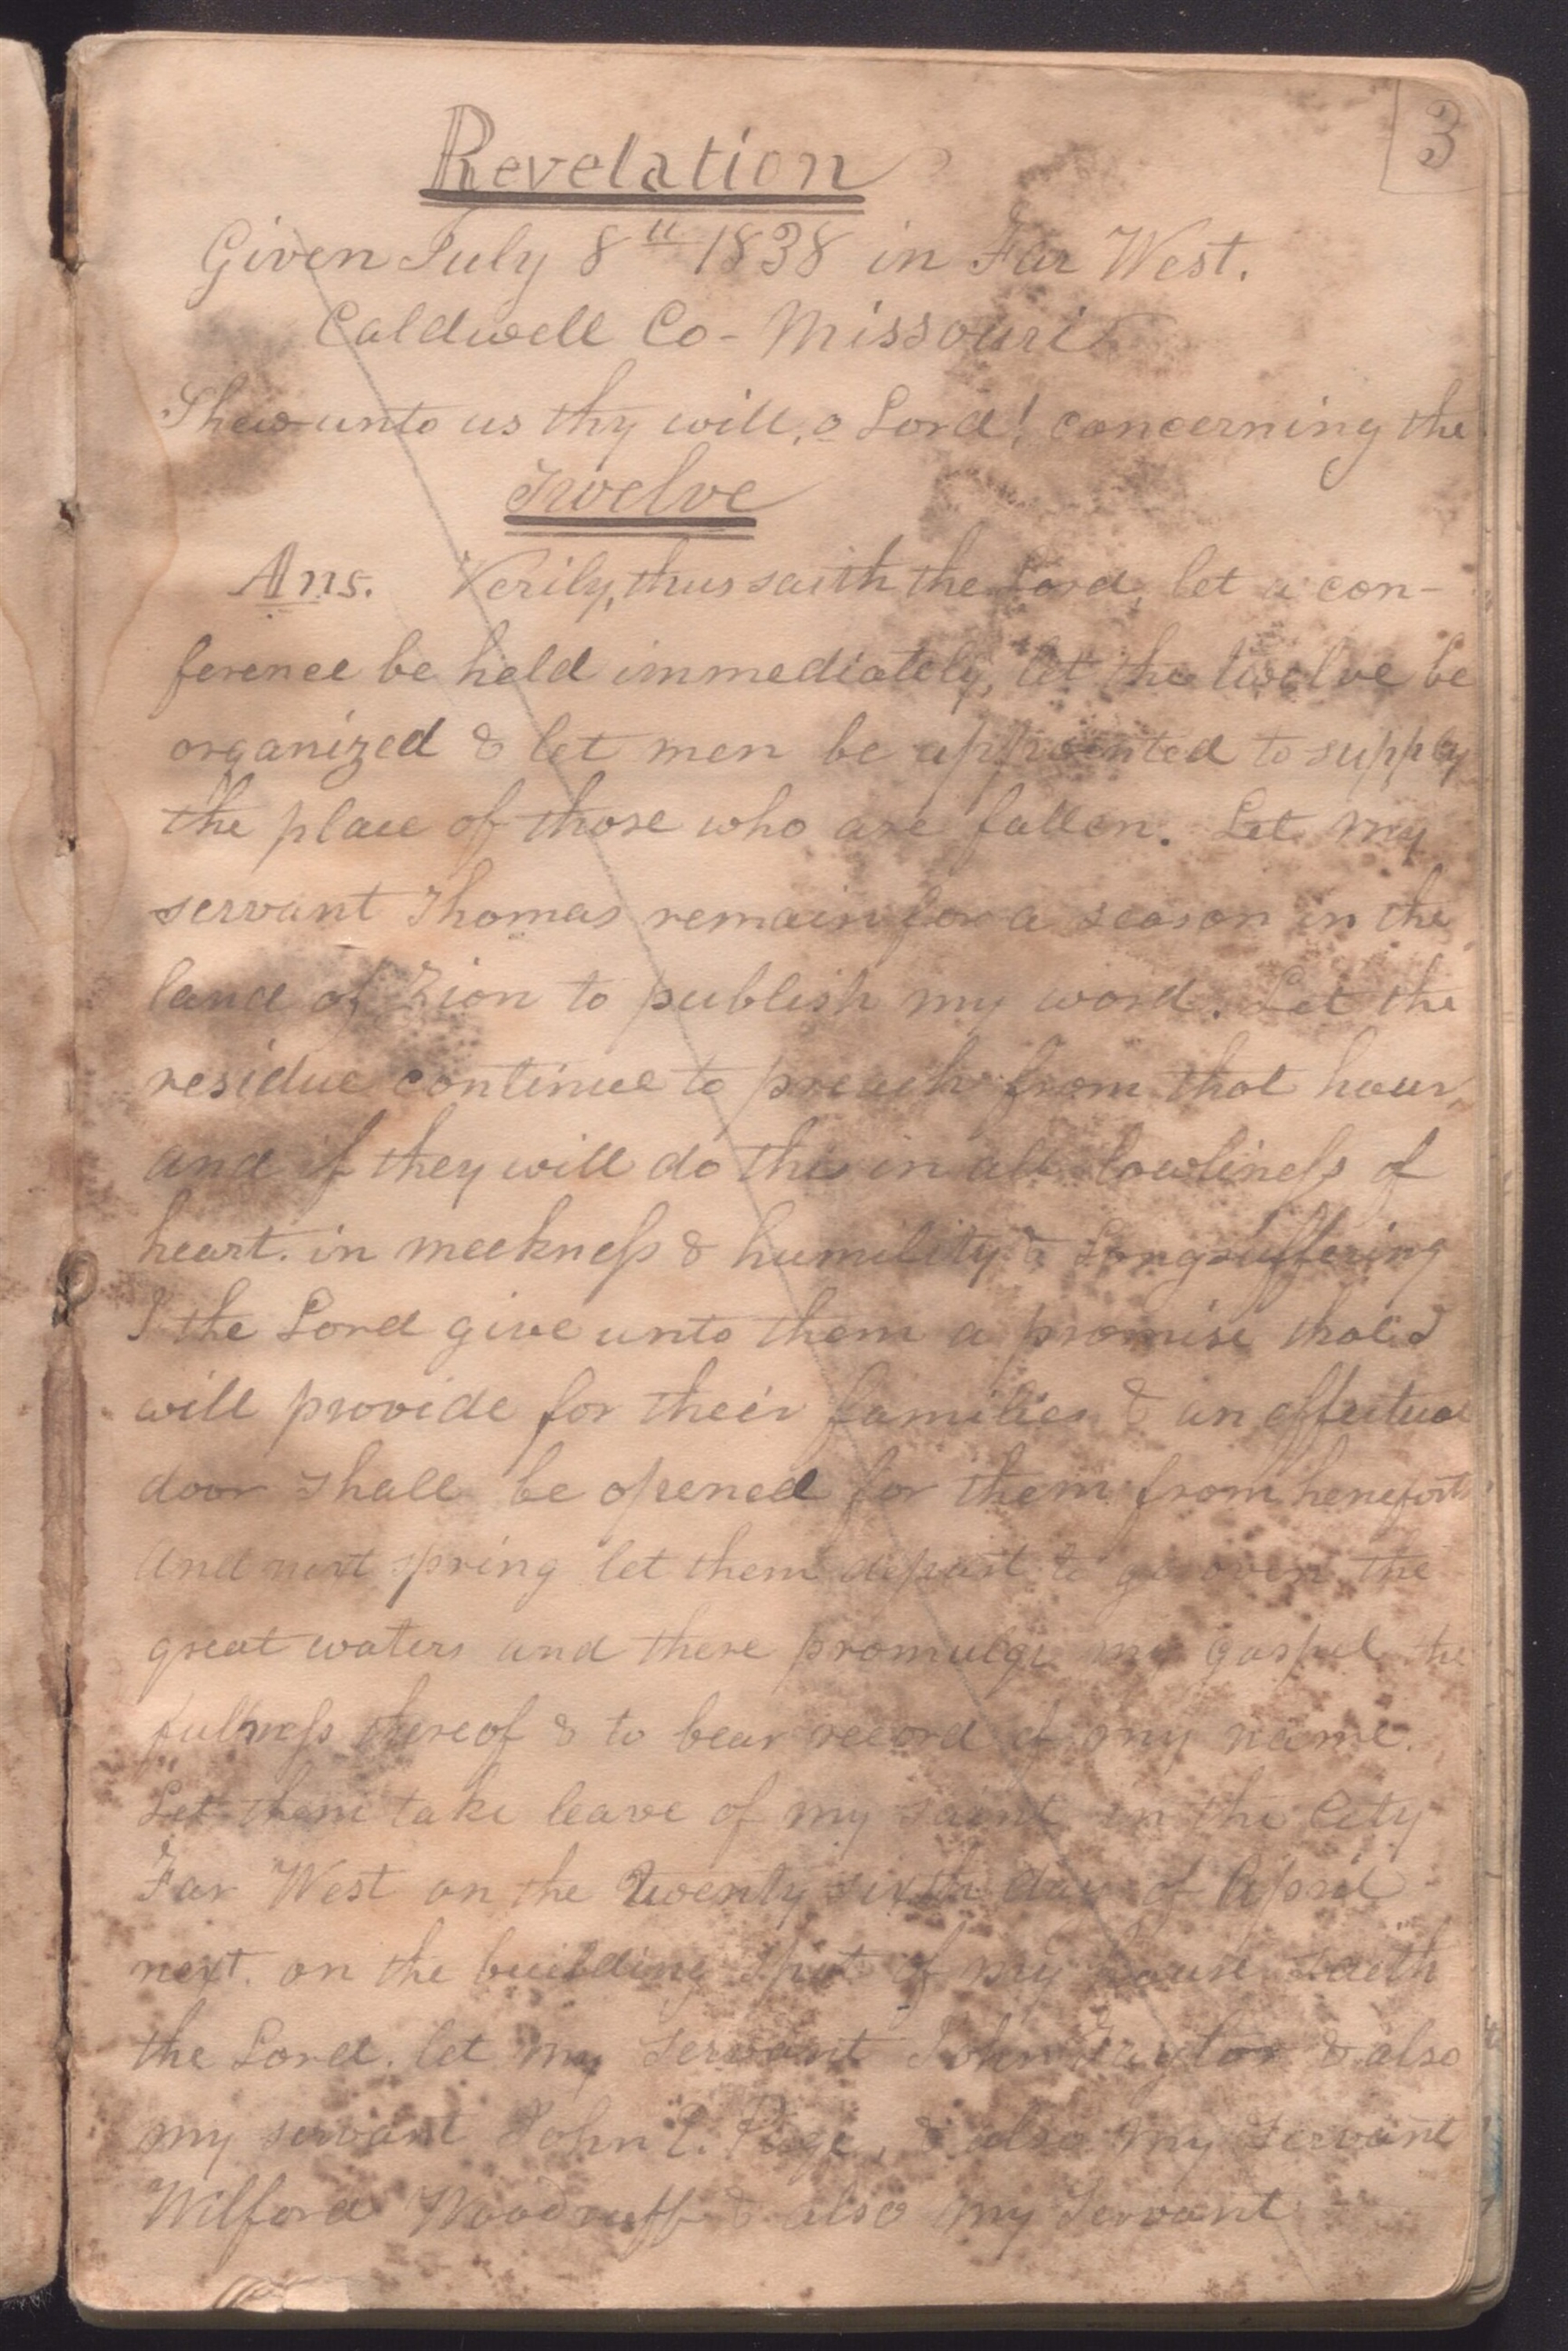 3
Revelation
Given July 8th 1838 in Far West.
Caldwell Co - Missouri
Shew unto us thy will, o Lord! concerning the
Twelve
Ans. Verily, thus saith the Lord, let a con-
ference be held immediately, let the twelve be
organized & let men be appointed to supply
the place of those who are fallen. Let my
servant Thomas remain for a season in the
land of Zion to publish my word. Let the
residue continue to preach from that hour,
and if they will do this in all lowliness of
heart. in meekness & humility & Longsuffering
I the Lord give unto them a promise that I
will provide for their families & an effectual
door shall be opened for them from henceforth
And next spring let them depart to go over the
great waters and there promulge my gospel the
fullness thereof & to bear record of my name.
Let them take leave of my saints in the City
Far West on the twenty sixth day of April
next. on the building spot of my house saith
the Lord. let my servant John Taylor & also
my servant John E. Page, & also my servant
Wilford Woodruff & also my servant